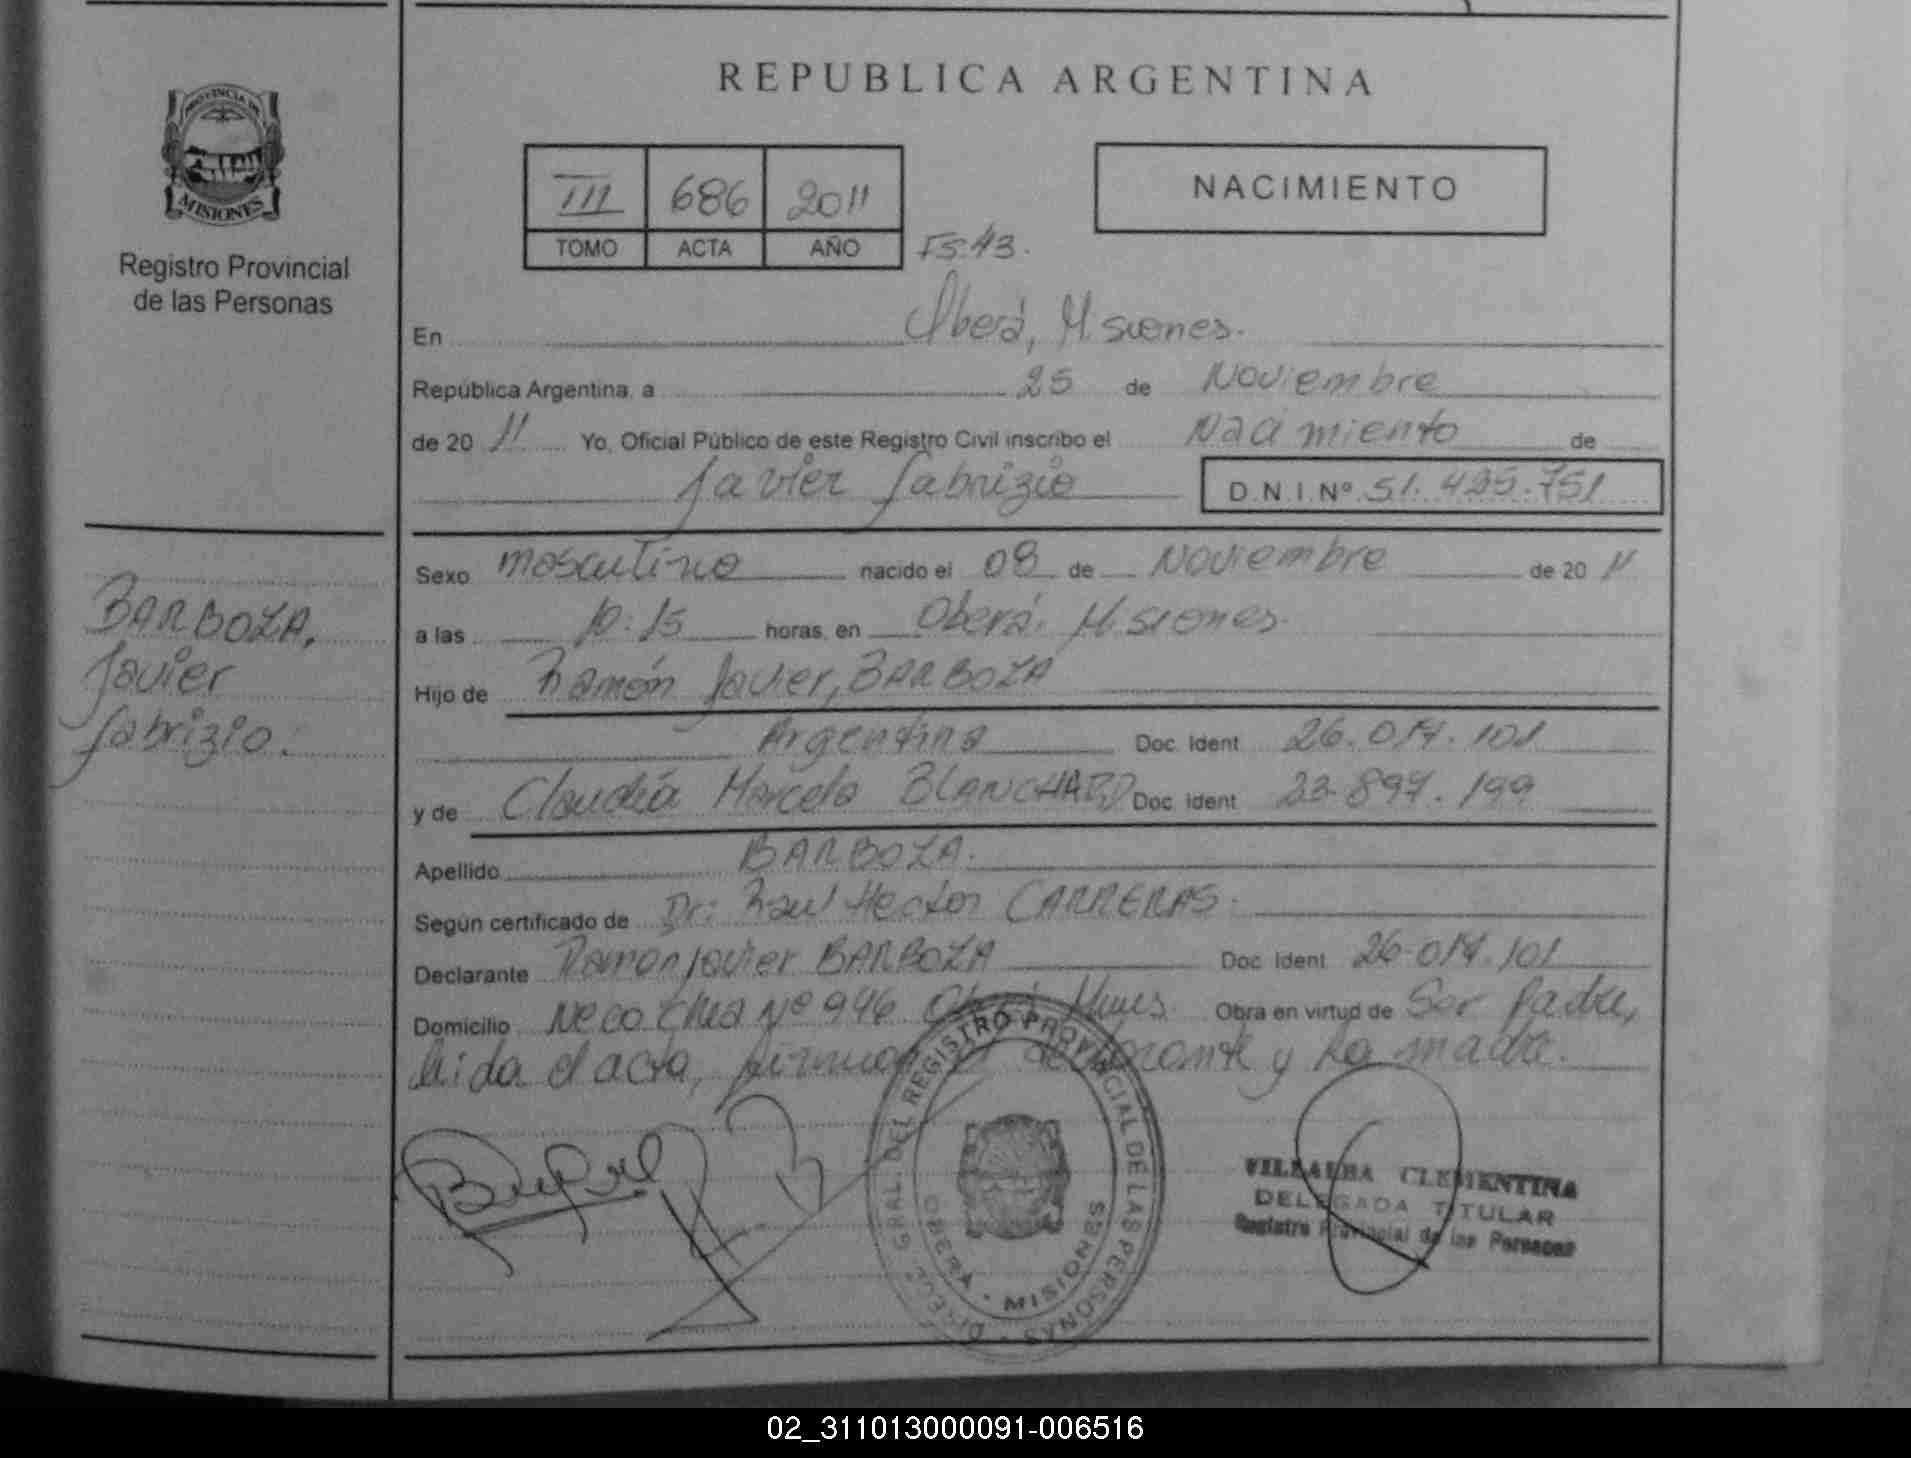 REPUBLICA ARGENTINA
PROVINCIA DE
MISIONES
Registro Provincial
de las Personas
III 686 2011
TOMO ACTA AÑO
Fs. 43.
NACIMIENTO
En Oberá, Misiones.
República Argentina, a 25 de Noviembre
de 20 11 Yo, Oficial Público de este Registro Civil inscribo el Nacimiento de
Javier Fabrizio D.N.I. Nº 51.425.751
BARBOZA,
Javier
Fabrizio.
Sexo masculino nacido el 08 de Noviembre de 20 11
a las 10:15 horas, en Oberá. Misiones.
Hijo de Ramón Javier, BARBOZA
Argentina Doc. Ident 26.017.101
y de Claudia Marcela BLANCHARD Doc Ident 23.897.199
Apellido BARBOZA.
Según certificado de Dr: Raul Hector CARRERAS.
Declarante Ramon Javier BARBOZA Doc Ident 26.017.101
Domicilio Necochea Nº 946 Oberá Mnes. Obra en virtud de Ser Padre,
leida el acta, firman el declarante y la madre.
DIRECC. GRAL. DEL REGISTRO PROVINCIAL DE LAS PERSONAS
OBERA - MISIONES
VILLALBA CLEMENTINA
DELEGADA TITULAR
Registro Provincial de las Personas
02_311013000091-006516